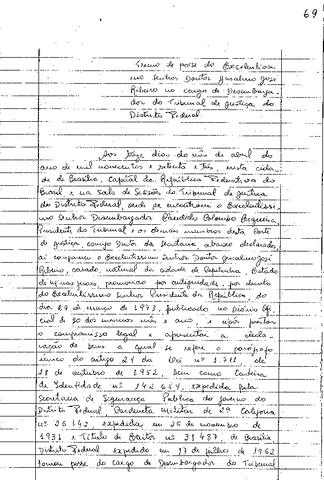 69
Termo de posse do Excelentíssi-
mo Senhor Doutor Juvalino José
Ribeiro no cargo de Desembarga-
dor do Tribunal de Justiça do
Distrito Federal.
Aos treze dias do mês de abril do
ano de mil novecentos e setenta e três, nesta cida-
de de Brasília, Capital da República Federativa do
Brasil e na Sala de Sessão do Tribunal de Justiça
do Distrito Federal, onde se encontravam o Excelentíssi-
mo Senhor Desembargador Cândido Colombo Cerqueira,
Presidente do Tribunal e os demais membros desta Corte
de Justiça comigo Diretor da Secretaria abaixo declarado,
aí compareceu o Excelentíssimo Senhor Doutor Juvalino José
Ribeiro, casado, natural da cidade de Capelinha, Estado
de Minas Gerais, promovido por antiguidade, por decreto
do Excelentíssimo Senhor Presidente da República, do
dia 29 de março de 1973, publicado no Diário Ofi-
cial de 30 dos mesmos mês e ano, e após prestar
o compromisso legal e apresentar a decla-
ração de bens a qual se refere o parágrafo
único do artigo 24 da Lei nº 1.711, de
28 de outubro de 1952, bem como Carteira
de Identidade nº 142 654, expedida pela
Secretaria de Segurança Pública do Governo do
Distrito Federal, Caderneta Militar de 2ª Categoria
nº 26 142, expedida em 26 de novembro de
1931 e Título de Eleitor nº 31 487, de Brasília
Distrito Federal expedido em 17 de julho de 1962
tomou posse do cargo de Desembargador do Tribunal